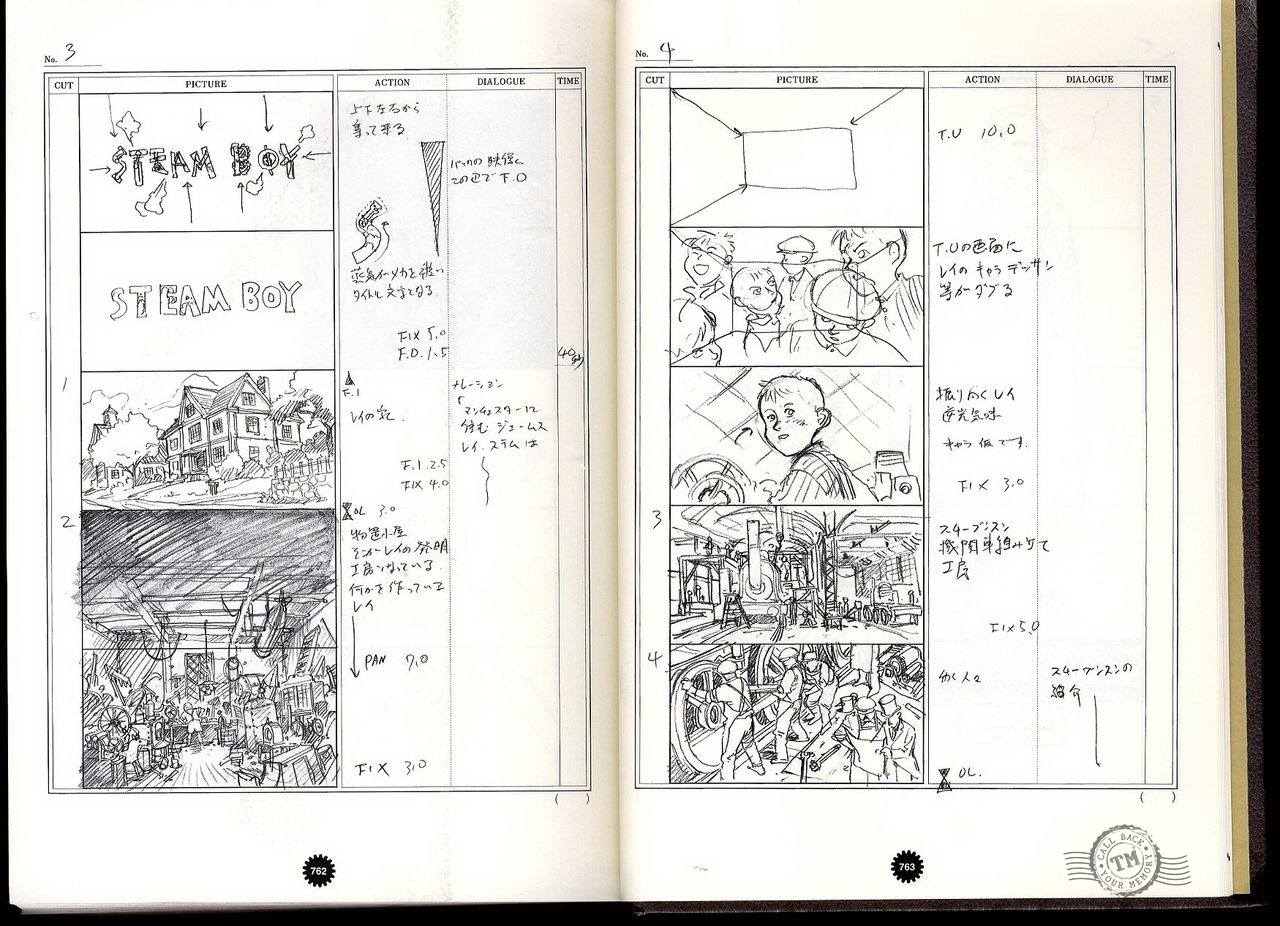 No. 3
CUT PICTURE ACTION DIALOGUE TIME
STEAM BOY
上下左右から
集って来る
バックの映像は
この辺で F.O
蒸気がメカを被い
タイトル文字となる
STEAM BOY
FIX 5.0
F.O. 1.5
40秒
1
F.I
レイの家.
F.I. 2.5
FIX 4.0
ナレーション
「
マンチェスターに
住む ジェームス
レイ.スチムは
2
OL 3.0
物置小屋
そこがレイの発明
工房になっている.
何かを作っている
レイ
PAN 7.0
FIX 3.0
762
No. 4
CUT PICTURE ACTION DIALOGUE TIME
T.U 10.0
T.Uの画面に
レイのキャラデッサン
等がダブる
振り向くレイ
逆光気味
キャラ仮です.
FIX 3.0
3
スチーブンスン
機関車組み立て
工房
FIX 5.0
4
働く人々
スチーブンスンの
紹介
OL.
763
CALL BACK
TM
YOUR MEMORY